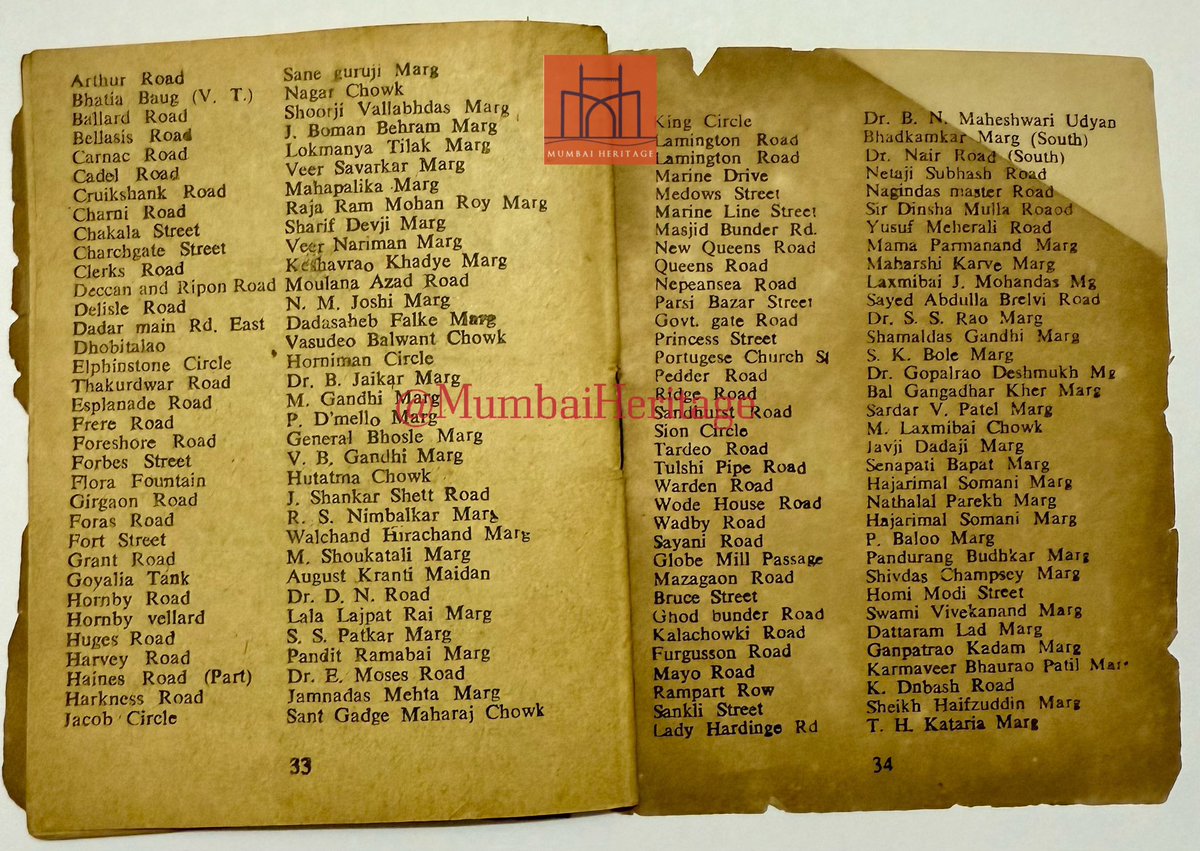 MUMBAI HERITAGE
Arthur Road Sane guruji Marg
Bhatia Baug (V. T.) Nagar Chowk
Ballard Road Shoorji Vallabhdas Marg
Bellasis Road J. Boman Behram Marg
Carnac Road Lokmanya Tilak Marg
Cadel Road Veer Savarkar Marg
Cruikshank Road Mahapalika Marg
Charni Road Raja Ram Mohan Roy Marg
Chakala Street Sharif Devji Marg
Charchgate Street Veer Nariman Marg
Clerks Road Keshavrao Khadye Marg
Deccan and Ripon Road Moulana Azad Road
Delisle Road N. M. Joshi Marg
Dadar main Rd. East Dadasaheb Falke Marg
Dhobitalao Vasudeo Balwant Chowk
Elphinstone Circle Horniman Circle
Thakurdwar Road Dr. B. Jaikar Marg
Esplanade Road M. Gandhi Marg
Frere Road P. D'mello Marg
Foreshore Road General Bhosle Marg
Forbes Street V. B. Gandhi Marg
Flora Fountain Hutatma Chowk
Girgaon Road J. Shankar Shett Road
Foras Road R. S. Nimbalkar Marg
Fort Street Walchand Hirachand Marg
Grant Road M. Shoukatali Marg
Goyalia Tank August Kranti Maidan
Hornby Road Dr. D. N. Road
Hornby vellard Lala Lajpat Rai Marg
Huges Road S. S. Patkar Marg
Harvey Road Pandit Ramabai Marg
Haines Road (Part) Dr. E. Moses Road
Harkness Road Jamnadas Mehta Marg
Jacob Circle Sant Gadge Maharaj Chowk
33
King Circle Dr. B. N. Maheshwari Udyan
Lamington Road Bhadkamkar Marg (South)
Lamington Road Dr. Nair Road (South)
Marine Drive Netaji Subhash Road
Medows Street Nagindas master Road
Marine Line Street Sir Dinsha Mulla Roaod
Masjid Bunder Rd. Yusuf Meherali Road
New Queens Road Mama Parmanand Marg
Queens Road Maharshi Karve Marg
Nepeansea Road Laxmibai J. Mohandas Mg
Parsi Bazar Street Sayed Abdulla Brelvi Road
Govt. gate Road Dr. S. S. Rao Marg
Princess Street Shamaldas Gandhi Marg
Portugese Church St S. K. Bole Marg
Pedder Road Dr. Gopalrao Deshmukh Mg
Ridge Road Bal Gangadhar Kher Marg
Sandhurst Road Sardar V. Patel Marg
Sion Circle M. Laxmibai Chowk
Tardeo Road Javji Dadaji Marg
Tulshi Pipe Road Senapati Bapat Marg
Warden Road Hajarimal Somani Marg
Wode House Road Nathalal Parekh Marg
Wadby Road Hajarimal Somani Marg
Sayani Road P. Baloo Marg
Globe Mill Passage Pandurang Budhkar Marg
Mazagaon Road Shivdas Champsey Marg
Bruce Street Homi Modi Street
Ghod bunder Road Swami Vivekanand Marg
Kalachowki Road Dattaram Lad Marg
Furgusson Road Ganpatrao Kadam Marg
Mayo Road Karmaveer Bhaurao Patil Marg
Rampart Row K. Dnbash Road
Sankli Street Sheikh Haifzuddin Marg
Lady Hardinge Rd T. H. Kataria Marg
34
@MumbaiHeritage